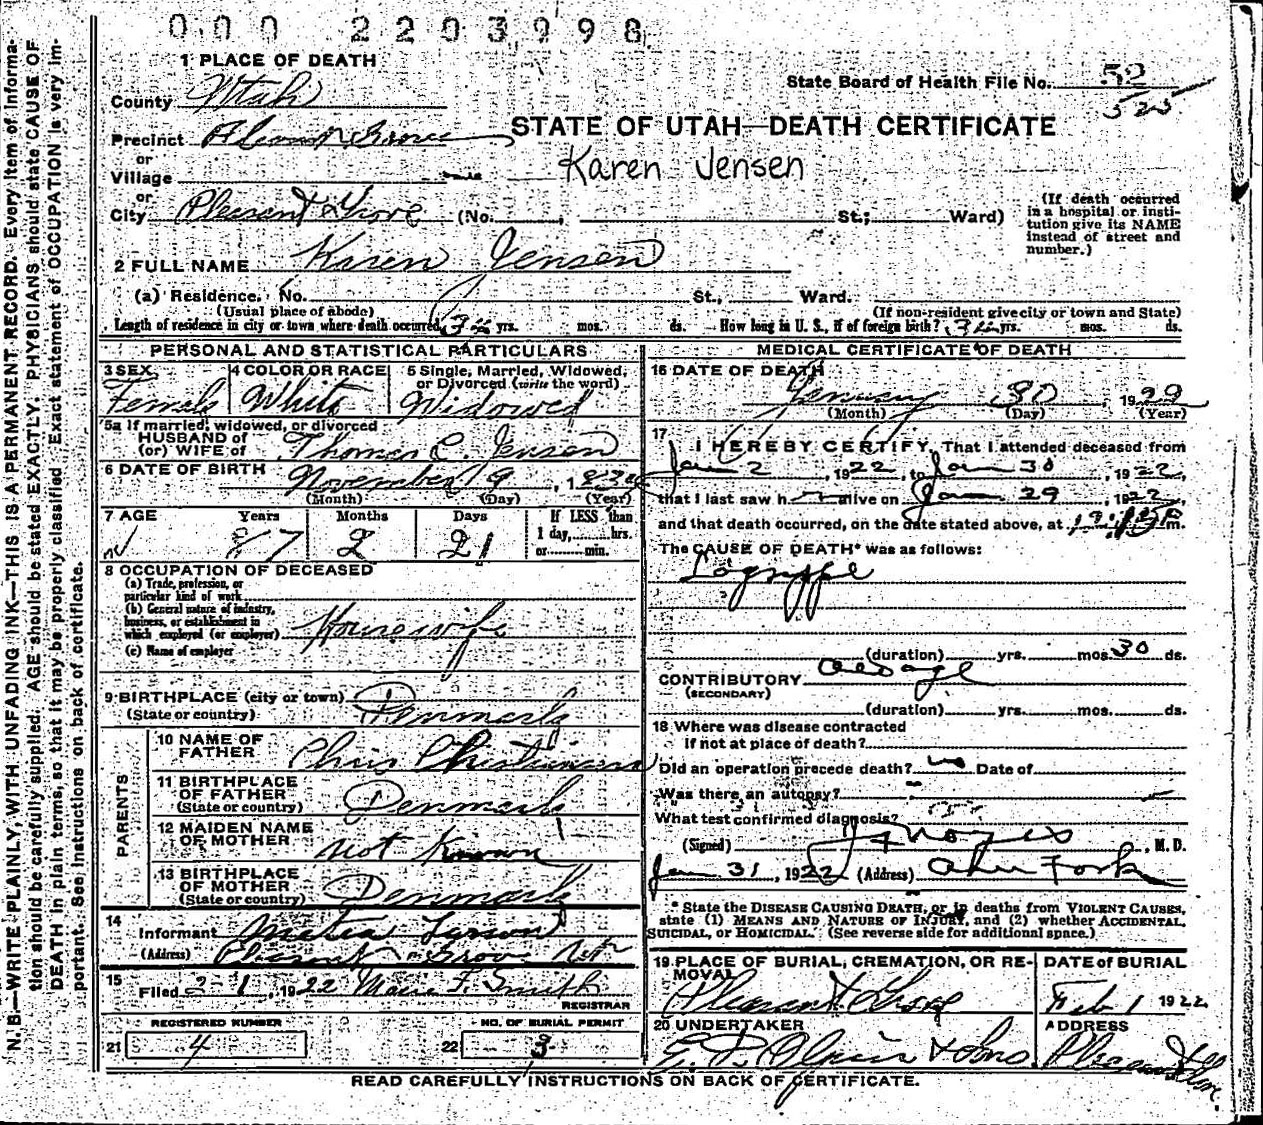 000 2203998
1 PLACE OF DEATH
State Board of Health File No. 52
525
County Utah
STATE OF UTAH—DEATH CERTIFICATE
Precinct Pleasant Grove
or
Village
Karen Jensen
or
City Pleasant Grove (No. , St.; Ward)
(If death occurred in a hospital or insti-
tution give its NAME
instead of street and
number.)
2 FULL NAME Karen Jensen
(a) Residence. No. St., Ward.
(Usual place of abode) (If non-resident give city or town and State)
Length of residence in city or town where death occurred yrs. mos. ds. How long in U. S., if of foreign birth? yrs. mos. ds.
PERSONAL AND STATISTICAL PARTICULARS
3 SEX 4 COLOR OR RACE 5 Single, Married, Widowed,
or Divorced (write the word)
Female White Widowed
5a If married, widowed, or divorced
HUSBAND of
(or) WIFE of Thomas C. Jensen
6 DATE OF BIRTH November 9, 1834
(Month) (Day) (Year)
7 AGE Years Months Days If LESS than
1 day, hrs.
or min.
87 2 21
8 OCCUPATION OF DECEASED
(a) Trade, profession, or
particular kind of work
(b) General nature of industry,
business, or establishment in
which employed (or employer) Housewife
(c) Name of employer
9 BIRTHPLACE (city or town)
(State or country) Denmark
PARENTS
10 NAME OF
FATHER Chris Christiansen
11 BIRTHPLACE
OF FATHER
(State or country) Denmark
12 MAIDEN NAME
OF MOTHER not Known
13 BIRTHPLACE
OF MOTHER
(State or country) Denmark
14
Informant
(Address) Pleasant Grove Utah
15
Filed 2-1, 1922 F. Smith
REGISTRAR
REGISTERED NUMBER NO. OF BURIAL PERMIT
21 4 22 3
MEDICAL CERTIFICATE OF DEATH
16 DATE OF DEATH
January 30, 1922
(Month) (Day) (Year)
17
I HEREBY CERTIFY, That I attended deceased from
Jan 2, 1922, to Jan 30, 1922,
that I last saw h alive on Jan 29, 1922
and that death occurred, on the date stated above, at m.
The CAUSE OF DEATH* was as follows:
Lagrippe
(duration) yrs. mos. 30 ds.
CONTRIBUTORY old age
(SECONDARY)
(duration) yrs. mos. ds.
18 Where was disease contracted
if not at place of death?
Did an operation precede death? no Date of
Was there an autopsy?
What test confirmed diagnosis?
(Signed) Noyes, M. D.
Jan 31, 1922 (Address) Am Fork
* State the DISEASE CAUSING DEATH, or in deaths from VIOLENT CAUSES,
state (1) MEANS AND NATURE OF INJURY, and (2) whether ACCIDENTAL,
SUICIDAL, or HOMICIDAL. (See reverse side for additional space.)
19 PLACE OF BURIAL, CREMATION, OR RE-
MOVAL DATE of BURIAL
Pleasant Grove Feb 1 1922
20 UNDERTAKER ADDRESS
& Sons Pleasant Grove
READ CAREFULLY INSTRUCTIONS ON BACK OF CERTIFICATE.
N.B—WRITE PLAINLY, WITH UNFADING INK—THIS IS A PERMANENT RECORD. Every item of informa-
tion should be carefully supplied. AGE should be stated EXACTLY. PHYSICIANS should state CAUSE OF
DEATH in plain terms, so that it may be properly classified. Exact statement of OCCUPATION is very im-
portant. See instructions on back of certificate.